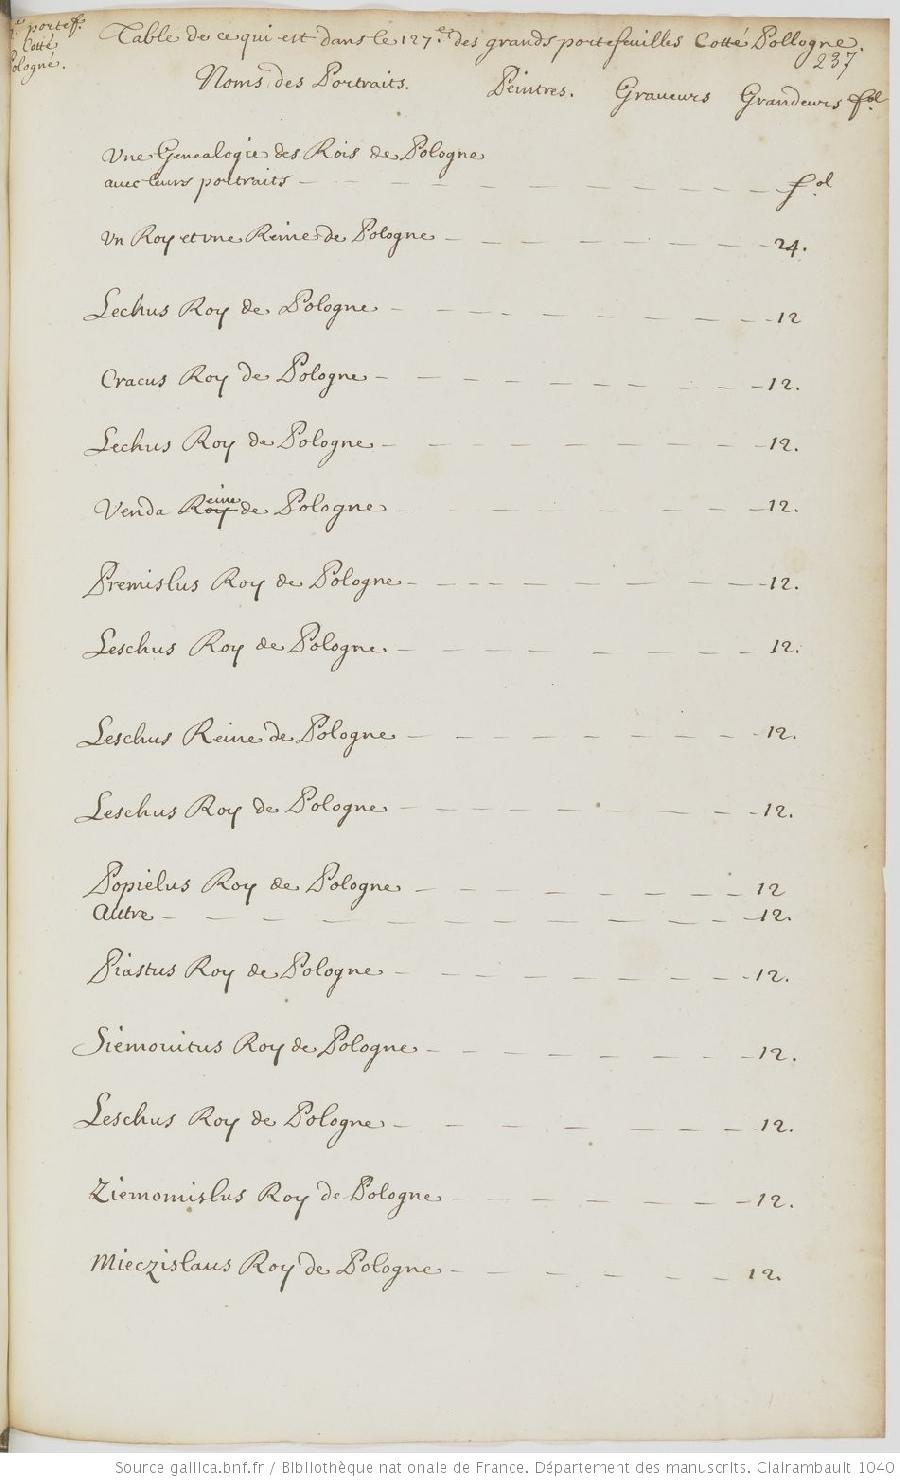 portef.
Cotté
Pologne.
Table de ce qui est dans le 127.e des grands portefeuilles Cotté Pollogne.
237
Noms des Portraits. Peintres. Graueurs Grandeurs fol
Vne Genealogie des Rois de Pologne
auec leurs portraits - - - - - - - - - - fol
Vn Roy et vne Reine de Pologne - - - - - - - - - 24.
Lechus Roy de Pologne - - - - - - - - - 12
Cracus Roy de Pologne - - - - - - - - - 12.
Lechus Roy de Pologne - - - - - - - - - 12.
Venda Roy eine de Pologne - - - - - - - 12.
Premislus Roy de Pologne - - - - - - - - - 12.
Leschus Roy de Pologne. - - - - - - - - 12.
Leschus Reine de Pologne - - - - - - - - - 12.
Leschus Roy de Pologne - - - - - - - - - 12.
Popielus Roy de Pologne - - - - - - - - 12
autre - - - - - - - - - - - 12.
Piastus Roy de Pologne - - - - - - - - - 12.
Siemouitus Roy de Pologne - - - - - - - - 12.
Leschus Roy de Pologne - - - - - - - 12.
Ziemomislus Roy de Pologne - - - - - - - 12.
Mieczislaus Roy de Pologne - - - - - - - 12.
Source gallica.bnf.fr / Bibliothèque nationale de France. Département des manuscrits. Clairambault 1040